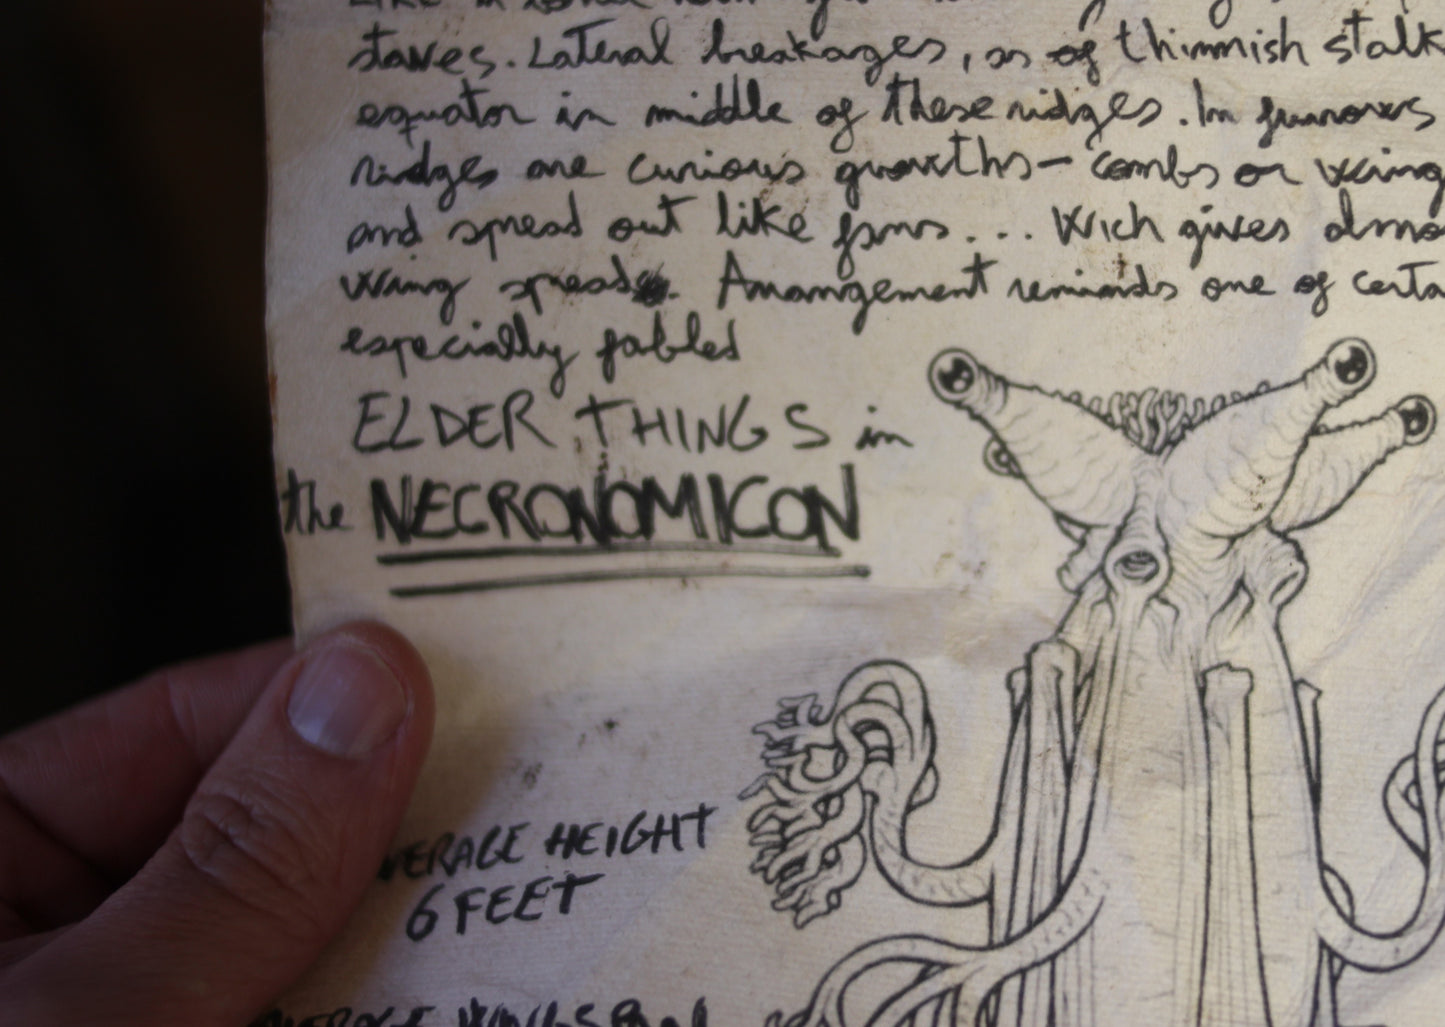 staves. Lateral breakages, as of thimmish stalk
equator in middle of these ridges. In furrows
ridges are curious growths - combs or wing
and spread out like fans... Wich gives almo
wing spreads. Arrangement reminds one of certa
especially fabled
ELDER THINGS in
the NECRONOMICON
VERAGE HEIGHT
6 FEET